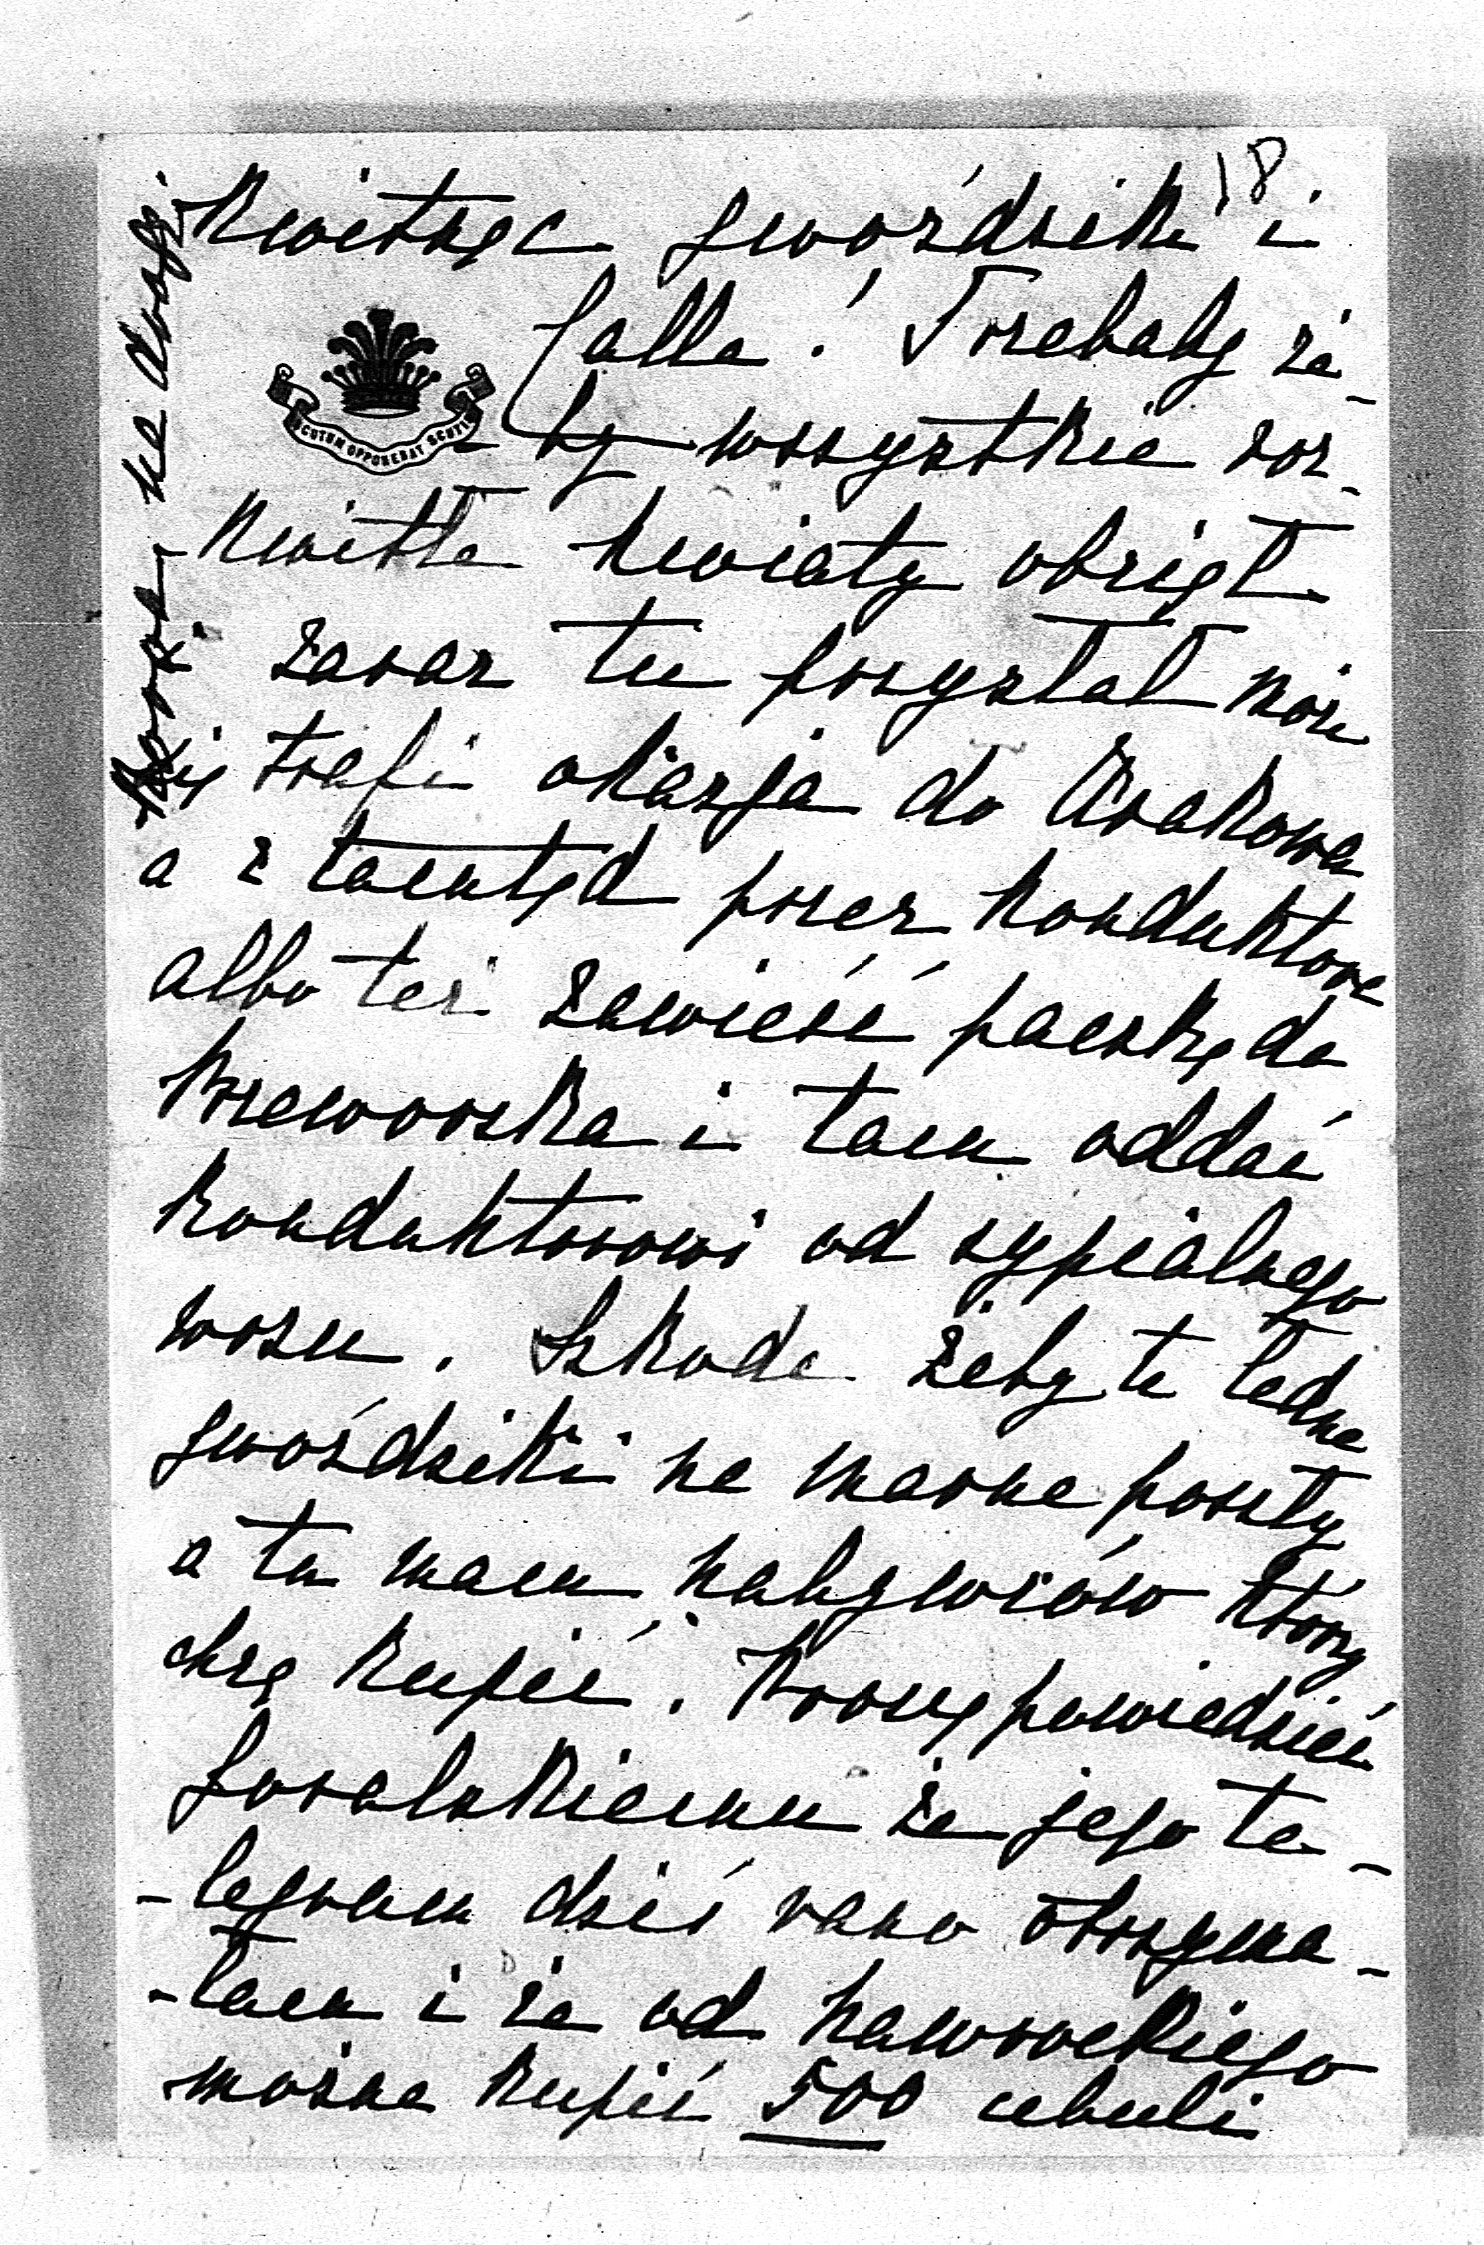 18
Kwitnęc gwoździki i
Calla. Trzebaby że-
SCUTUM OPPONEBAT SCUTIS
by wszystkie roz-
kwitłe kwiaty obrięł
i zaraz tu przysłał może
się trafi okazja do Krakowa
a z tamtąd przez konduktora
albo też zawieść paczkę do
Przeworska i tam oddać
konduktorowi od sypialnego
wozu. Szkoda żeby te ładne
gwoździki na marne poszły
a tu mam nabywców którzy
chcą kupić. Proszę powiedzieć
Goralskiemu że jego te-
-legram dziś rano otrzyma-
-łam i że od Nawrockiego
można kupić 500 cebuli
na drogi